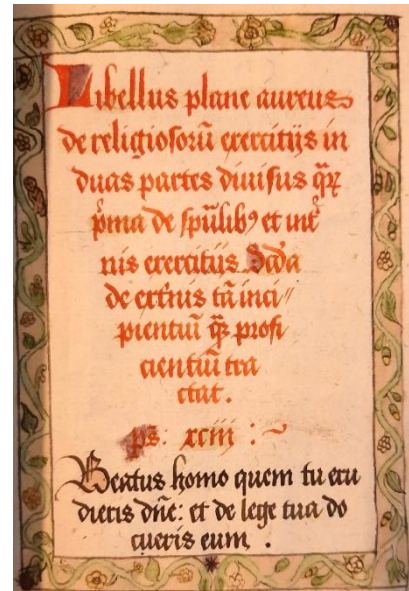 Libellus plane aureus
de religiosorū exercitijs in
duas partes diuisus qꝝ
p̃ma de sp̄ulibꝰ et int̃
nis exercitijs Scd̄a
de ext̃nis tā inci〃
pientiū q̄ꝫ profi
cientiū tra
ctat.
ps. xciii : ~
Beatus homo quem tu eru
dieris dn̄e: et de lege tua do
cueris eum .